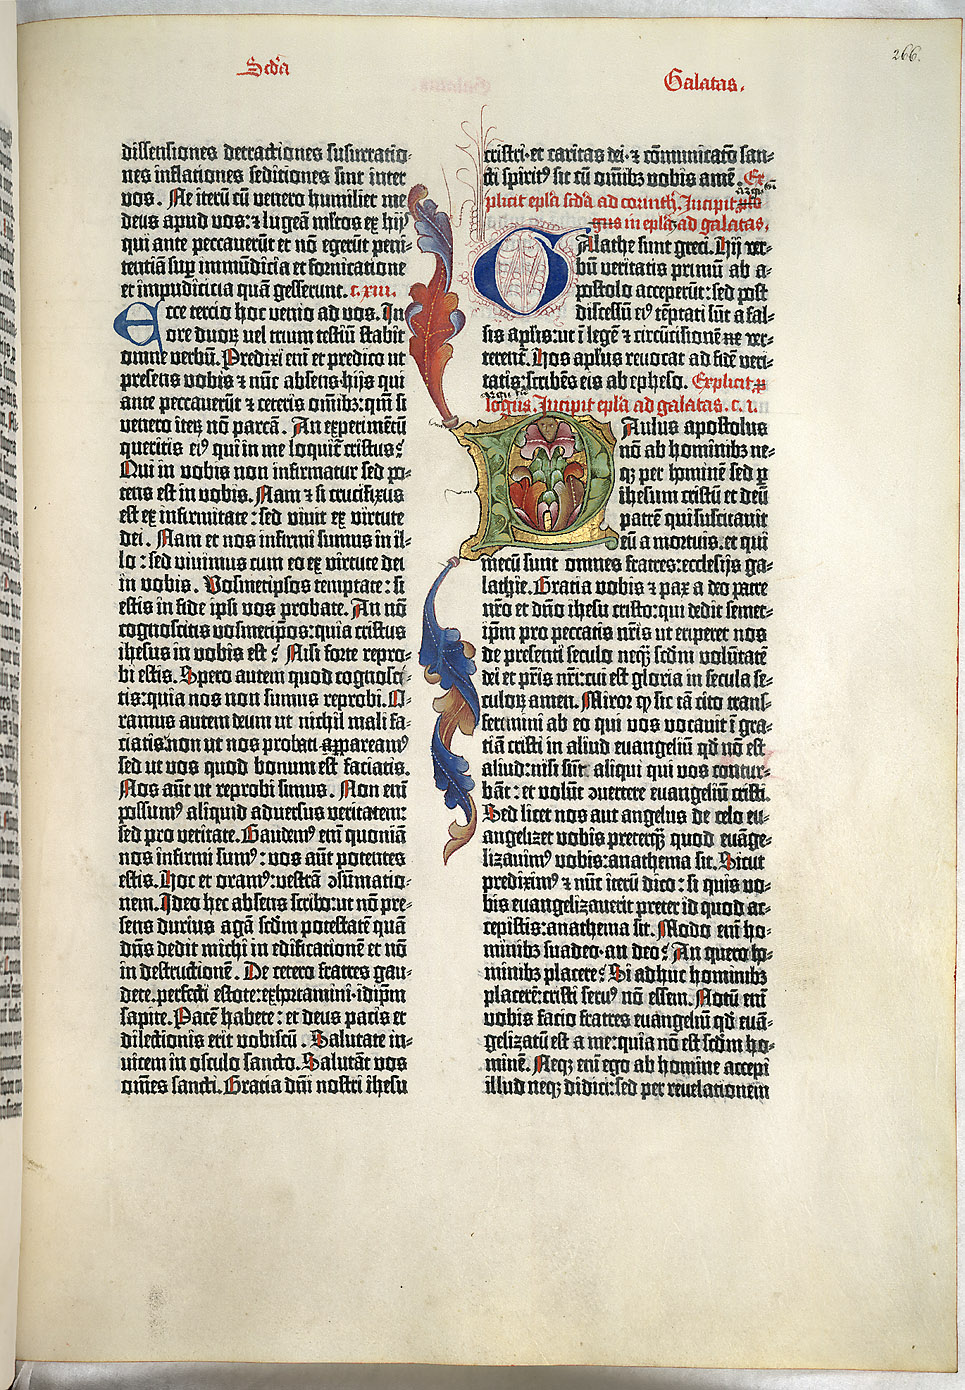 Scďa
Galatas.
266.
dissensiones detractiones susurratio-
nes inflationes seditiones sint inter
vos. Ne iterū cū venero humiliet me
deus apud vos: ⁊ lugeā mltos ex hijs
qui ante peccaverūt et nō egerūt peni-
tentiā sup̄ immūdicia et fornicatione
et impudicicia quā gesserunt. c. xiii.
Ecce tercio hoc venio ad vos. In
ore duoꝝ uel trium testiū stabit
omne verbū. Predixi em̄ et predico ut
presens vobis ⁊ nūc absens hijs qui
ante peccaverūt ⁊ ceteris om̄ibꝫ: qm̄ si
venero iteꝝ nō parcā. An experimētū
queritis eiꝰ qui in me loquit̄ cristus?
Qui in vobis non infirmatur sed po-
tens est in vobis. Nam ⁊ si crucifixus
est ex infirmitate: sed vivit ex virtute
dei. Nam et nos infirmi sumus in il-
lo: sed vivimus cum eo ex virtute dei
in vobis. Vosmetipsos temptate: si
estis in fide ipsi vos probate. An nō
cognoscitis vosmetip̄os: quia cristus
ihesus in vobis est? Nisi forte repro-
bi estis. Spero autem quod cognosci-
tis: quia nos non sumus reprobi. O-
ramus autem deum ut nichil mali fa-
ciatis: non ut nos probati appareamꝰ
sed ut vos quod bonum est faciatis.
Nos aūt ut reprobi simus. Non em̄
possumꝰ aliquid adversus veritatem:
sed pro veritate. Gaudemꝰ em̄ quoniā
nos infirmi sumꝰ: vos aūt potentes
estis. Hoc et oramꝰ: vestrā ꝯsūmatio-
nem. Ideo hec absens scribo: ut nō pre-
sens durius agā scďm potestatē quā
dn̄s dedit michi in edificationē et nō
in destructionē. De cetero fratres gau-
dete. perfecti estote: exhortamini. idip̄m
sapite. Pacē habete: et deus pacis et
dilectionis erit vobiscū. Salutate in-
vicem in osculo sancto. Salutāt vos
om̄es sancti. Gratia dn̄i nostri ihesu
cristi. et caritas dei. ⁊ cōmunicatō san-
cti spiritꝰ sit cū om̄ibꝫ vobis amē. Ex-
plicit epl̄a scďa ad corinth. Incipit
in epl̄a ad galatas.
GAlathe sunt greci. Hij ver-
bū veritatis primū ab a-
postolo acceperūt: sed post
discessū eiꝰ tēptati sūt a fal-
sis apl̄is: ut ī legē ⁊ circūcisionē verterent̄
Hos apl̄us revocat ad fidē veri-
tatis: scribēs eis ab epheso. Explicit
Incipit epl̄a ad galatas. c. i.
PAulus apostolus
nō ab hominibꝫ ne-
qꝫ per hominē sed ꝑ
ihesum cristū et deū
patrē qui suscitavit
eū a mortuis. et qui
mecū sunt omnes fratres: ecclesijs ga-
lathie. Gratia vobis ⁊ pax a deo patre
nr̄o et dn̄o ihesu cristo: qui dedit semet-
ip̄m pro peccatis nr̄is ut eriperet nos
de presenti seculo nequā scďm volūtatē
dei et pr̄is nr̄i: cui est gloria in secula se-
culoꝝ amen. Miror ꝙ sic tā cito trans-
ferimini ab eo qui vos vocavit ī gra-
tiā cristi in aliud evangeliū qđ nō est
aliud: nisi sūt aliqui qui vos contur-
bāt: et volūt ꝯvertere evangeliū cristi.
Sed licet nos aut angelus de celo eu-
angelizet vobis preterqꝫ quod euāge-
lizavimꝰ vobis: anathema sit. Sicut
prediximꝰ ⁊ nūc iterū dico: si quis vo-
bis evangelizaverit preter id quod ac-
cepistis: anathema sit. Modo em̄ ho-
minibꝫ suadeo an deo? An quero ho-
minibꝫ placere? Si adhuc hominibꝫ
placerē: cristi servꝰ nō essem. Notū em̄
vobis facio fratres euāngeliū qđ euā-
gelizatū est a me: quia nō est scďm ho-
minē. Neqꝫ em̄ ego ab homine accepi
illud neqꝫ didici: sed per revelationem